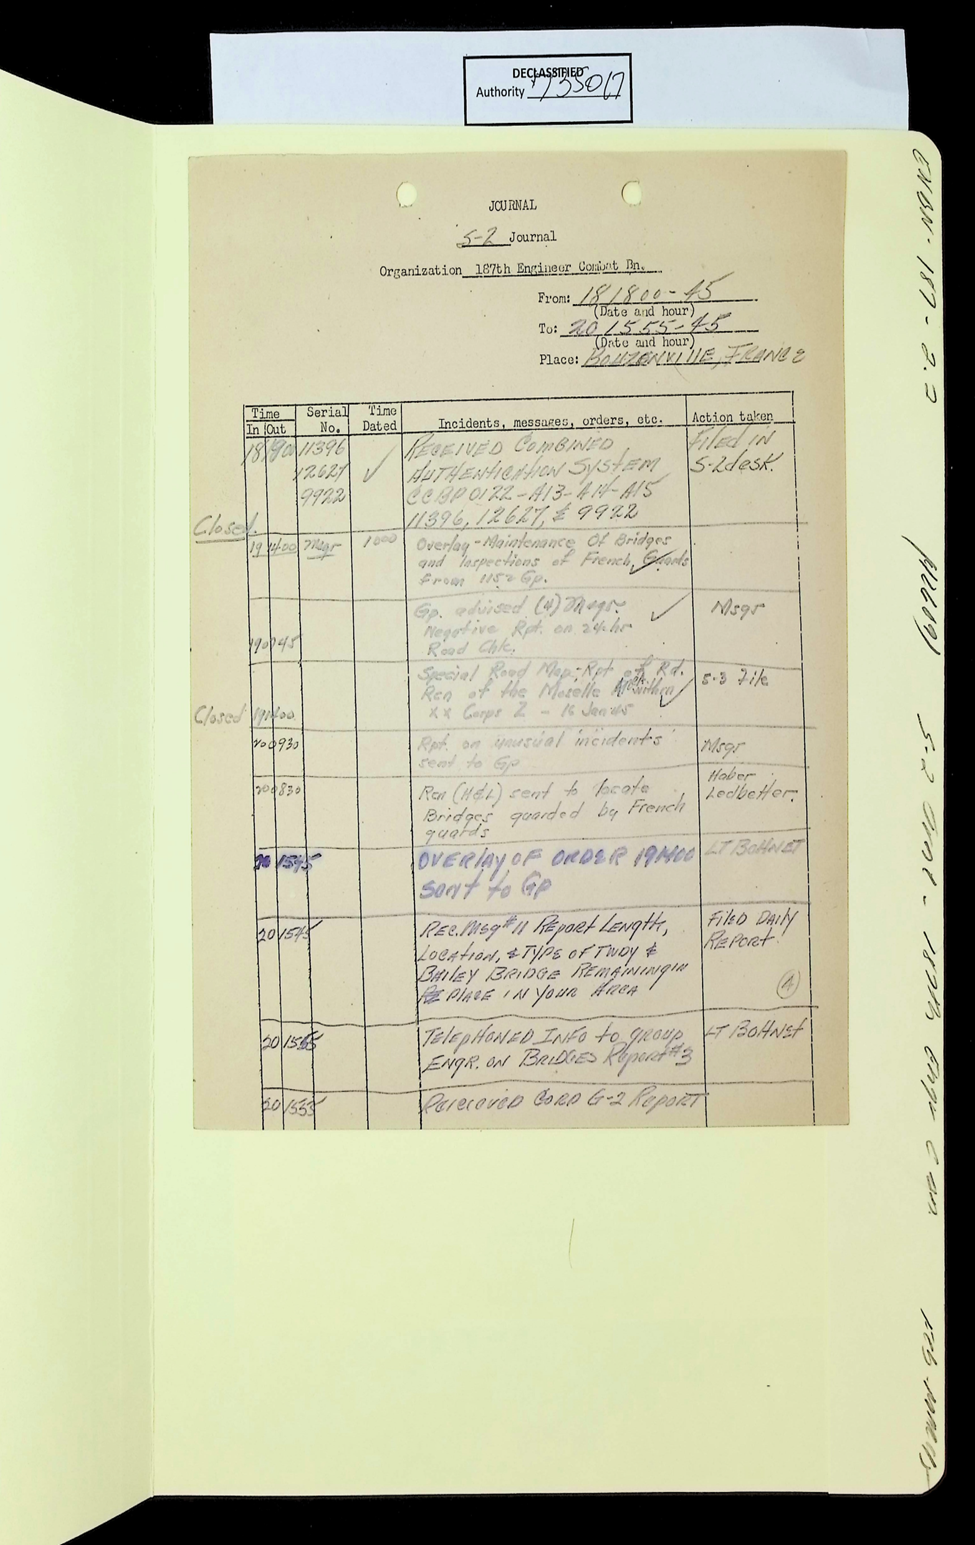 DECLASSIFIED
Authority 735017
JOURNAL
S-2 Journal
Organization 187th Engineer Combat Bn.
From: 181800-45
(Date and hour)
To: 201555-45
(Date and hour)
Place: BOUZONVILLE, FRANCE
Time
In Out
Serial No.
Time Dated
Incidents, messages, orders, etc.
Action taken
18 1900 11396 RECEIVED COMBINED Filed IN
12627 AUTHENTICATION SYSTEM S-2 desk.
9922 CCBP 0122-A13-A14-A15
11396, 12627, & 9922
Closed
19 1400 Msgr 1000 Overlay-Maintenance Of Bridges
and Inspections of French Guards
from 1152 Gp.
Gp. advised (4) Msgs. Msgs
Negative Rpt. on 24 hr
190745 Road Chk.
Special Road Map-Rpt of Rd. S-3 File
Rcn of the Moselle
Closed 191400 XX Corps Z - 16 Jan 45
200930 Rpt. on unusual incidents Msgr
sent to Gp
200830 Rcn (H&L) sent to locate Haber
Bridges guarded by French Ledbetter.
guards
20 1545 OVERlAY OF ORDER 191400 LT BOHNET
SENT to GP
20 1545 REC. Msg #11 REPORT LENGTH, FilED DAILY
LOCATION, & TYPE OF TWDY & REPORT.
BAILEY BRIDGE REMAINING IN
PLACE IN YOUR AREA
20 1555 TELEPHONED INFO to GROUP LT BOHNET
ENGR. ON BRIDGES Report #3
20 1555 Recieved CORP G-2 REPORT
ENBN-187-2.2
S-2 Jrnl - 187th Engr C Bn